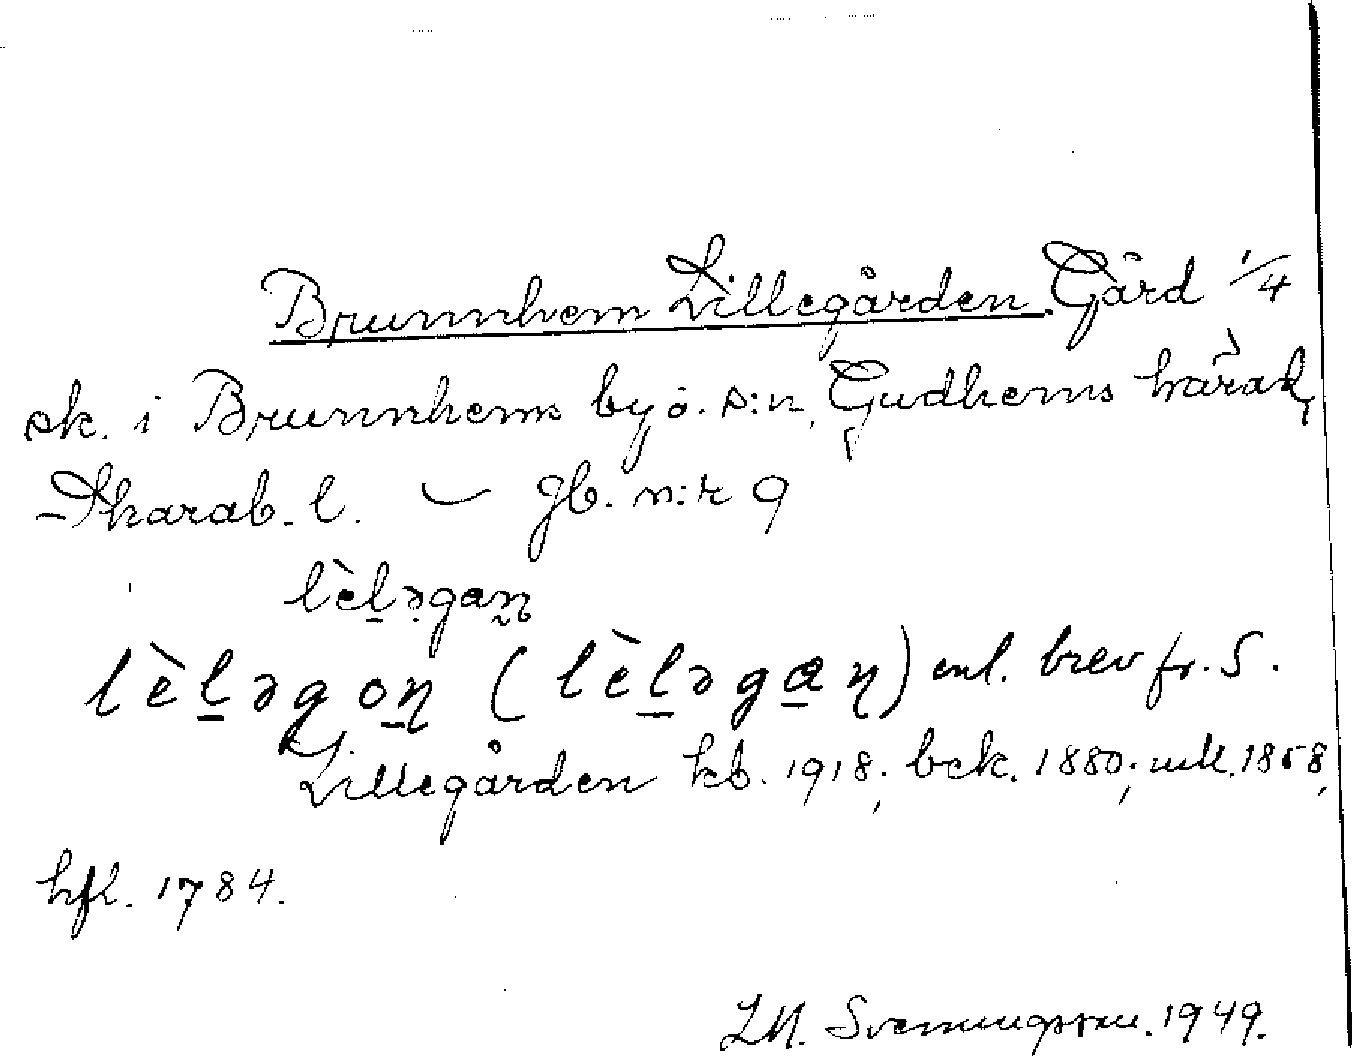 Brunnhem Lillegården Gård 1/4
sk. i Brunnhems by o. s:n, Gudhems härad,
Skarab. l. — jb. n:r 9
lèləgaɳ
lèləgoɳ (lèləgaɳ) enl. brev fr. S.
Lillegården kb. 1918; bck. 1880; 1858,
hfl. 1784.
Svenningsson. 1949.